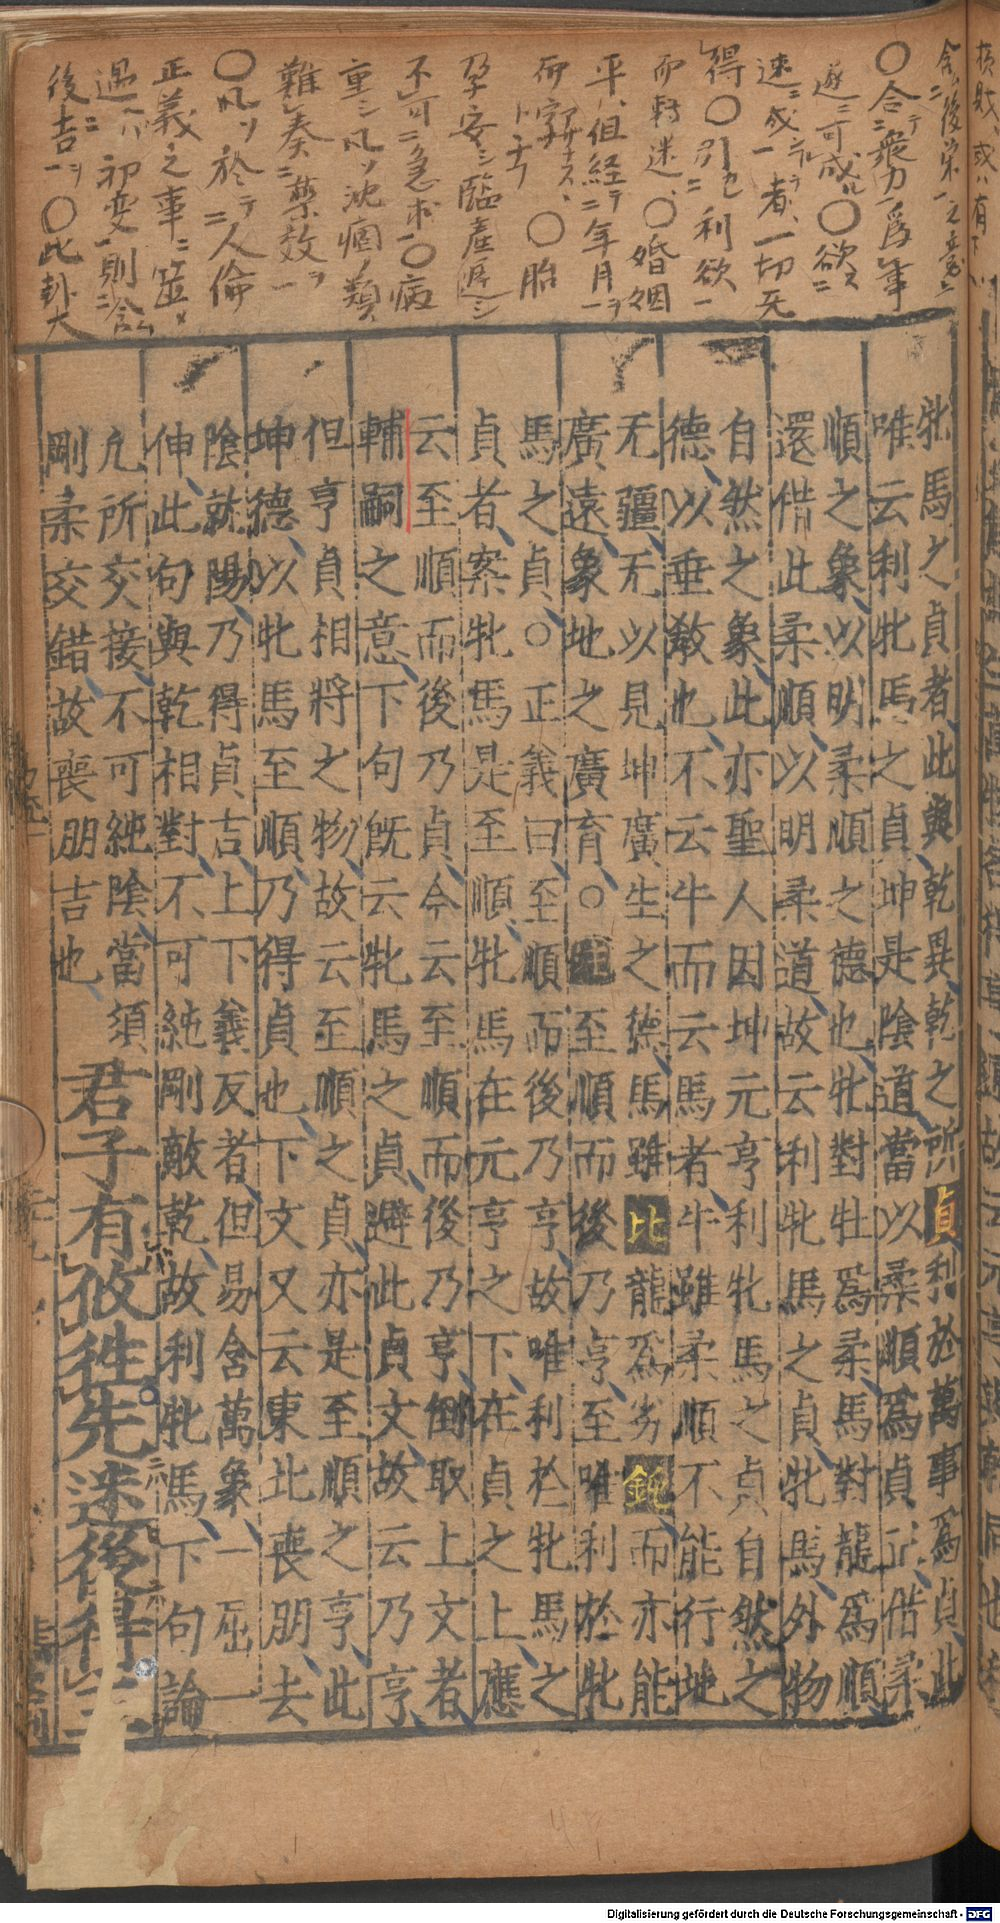 含ニ後栄一之意ニ
〇合テ衆力爲事
遂ニ可成ル〇欲スニ
速ニ成一者一切无
得〇引ニ利欲一
而転迷〇婚姻
平但経テ年月ヲ
而〇胎
孕安シ臨産遅シ
不可ニ急求一〇病
重シ凡ソ沈痼ノ類
難奏ニ薬效一ヲ
〇凡ソ於テニ人倫
正義之事ニ筮メ
遇ハニ初変一則ニ吝
後吉一ヲ〇此卦大
牝馬之貞者此與乾異乾之所貞利於萬事爲貞此
唯云利牝馬之貞坤是陰道當以柔順爲貞正借柔
順之象以明柔順之德也牝對牡爲柔馬對龍爲順
還借此柔順以明柔道故云利牝馬之貞牝馬外物
自然之象此亦聖人因坤元亨利牝馬之貞自然之
德以垂敎也不云牛而云馬者牛雖柔順不能行地
无疆无以見坤廣生之德馬雖比龍爲劣鈍而亦能
廣遠象地之廣育○注至順而後乃亨至唯利於牝
馬之貞○正義曰至順而後乃亨故唯利於牝馬之
貞者案牝馬是至順牝馬在元亨之下在貞之上應
云至順而後乃貞今云至順而後乃亨倒取上文者
輔嗣之意下句旣云牝馬之貞避此貞文故云乃亨
但亨貞相將之物故云至順之貞亦是至順之亨此
坤德以牝馬至順乃得貞也下文又云東北喪朋去
陰就陽乃得貞吉上下義反者但易含萬象一屈一
伸此句與乾相對不可純剛敵乾故利牝馬下句論
凢所交接不可純陰當須
剛柔交錯故喪朋吉也
君子有攸往先迷後得主
Digitalisierung gefördert durch die Deutsche Forschungsgemeinschaft - DFG